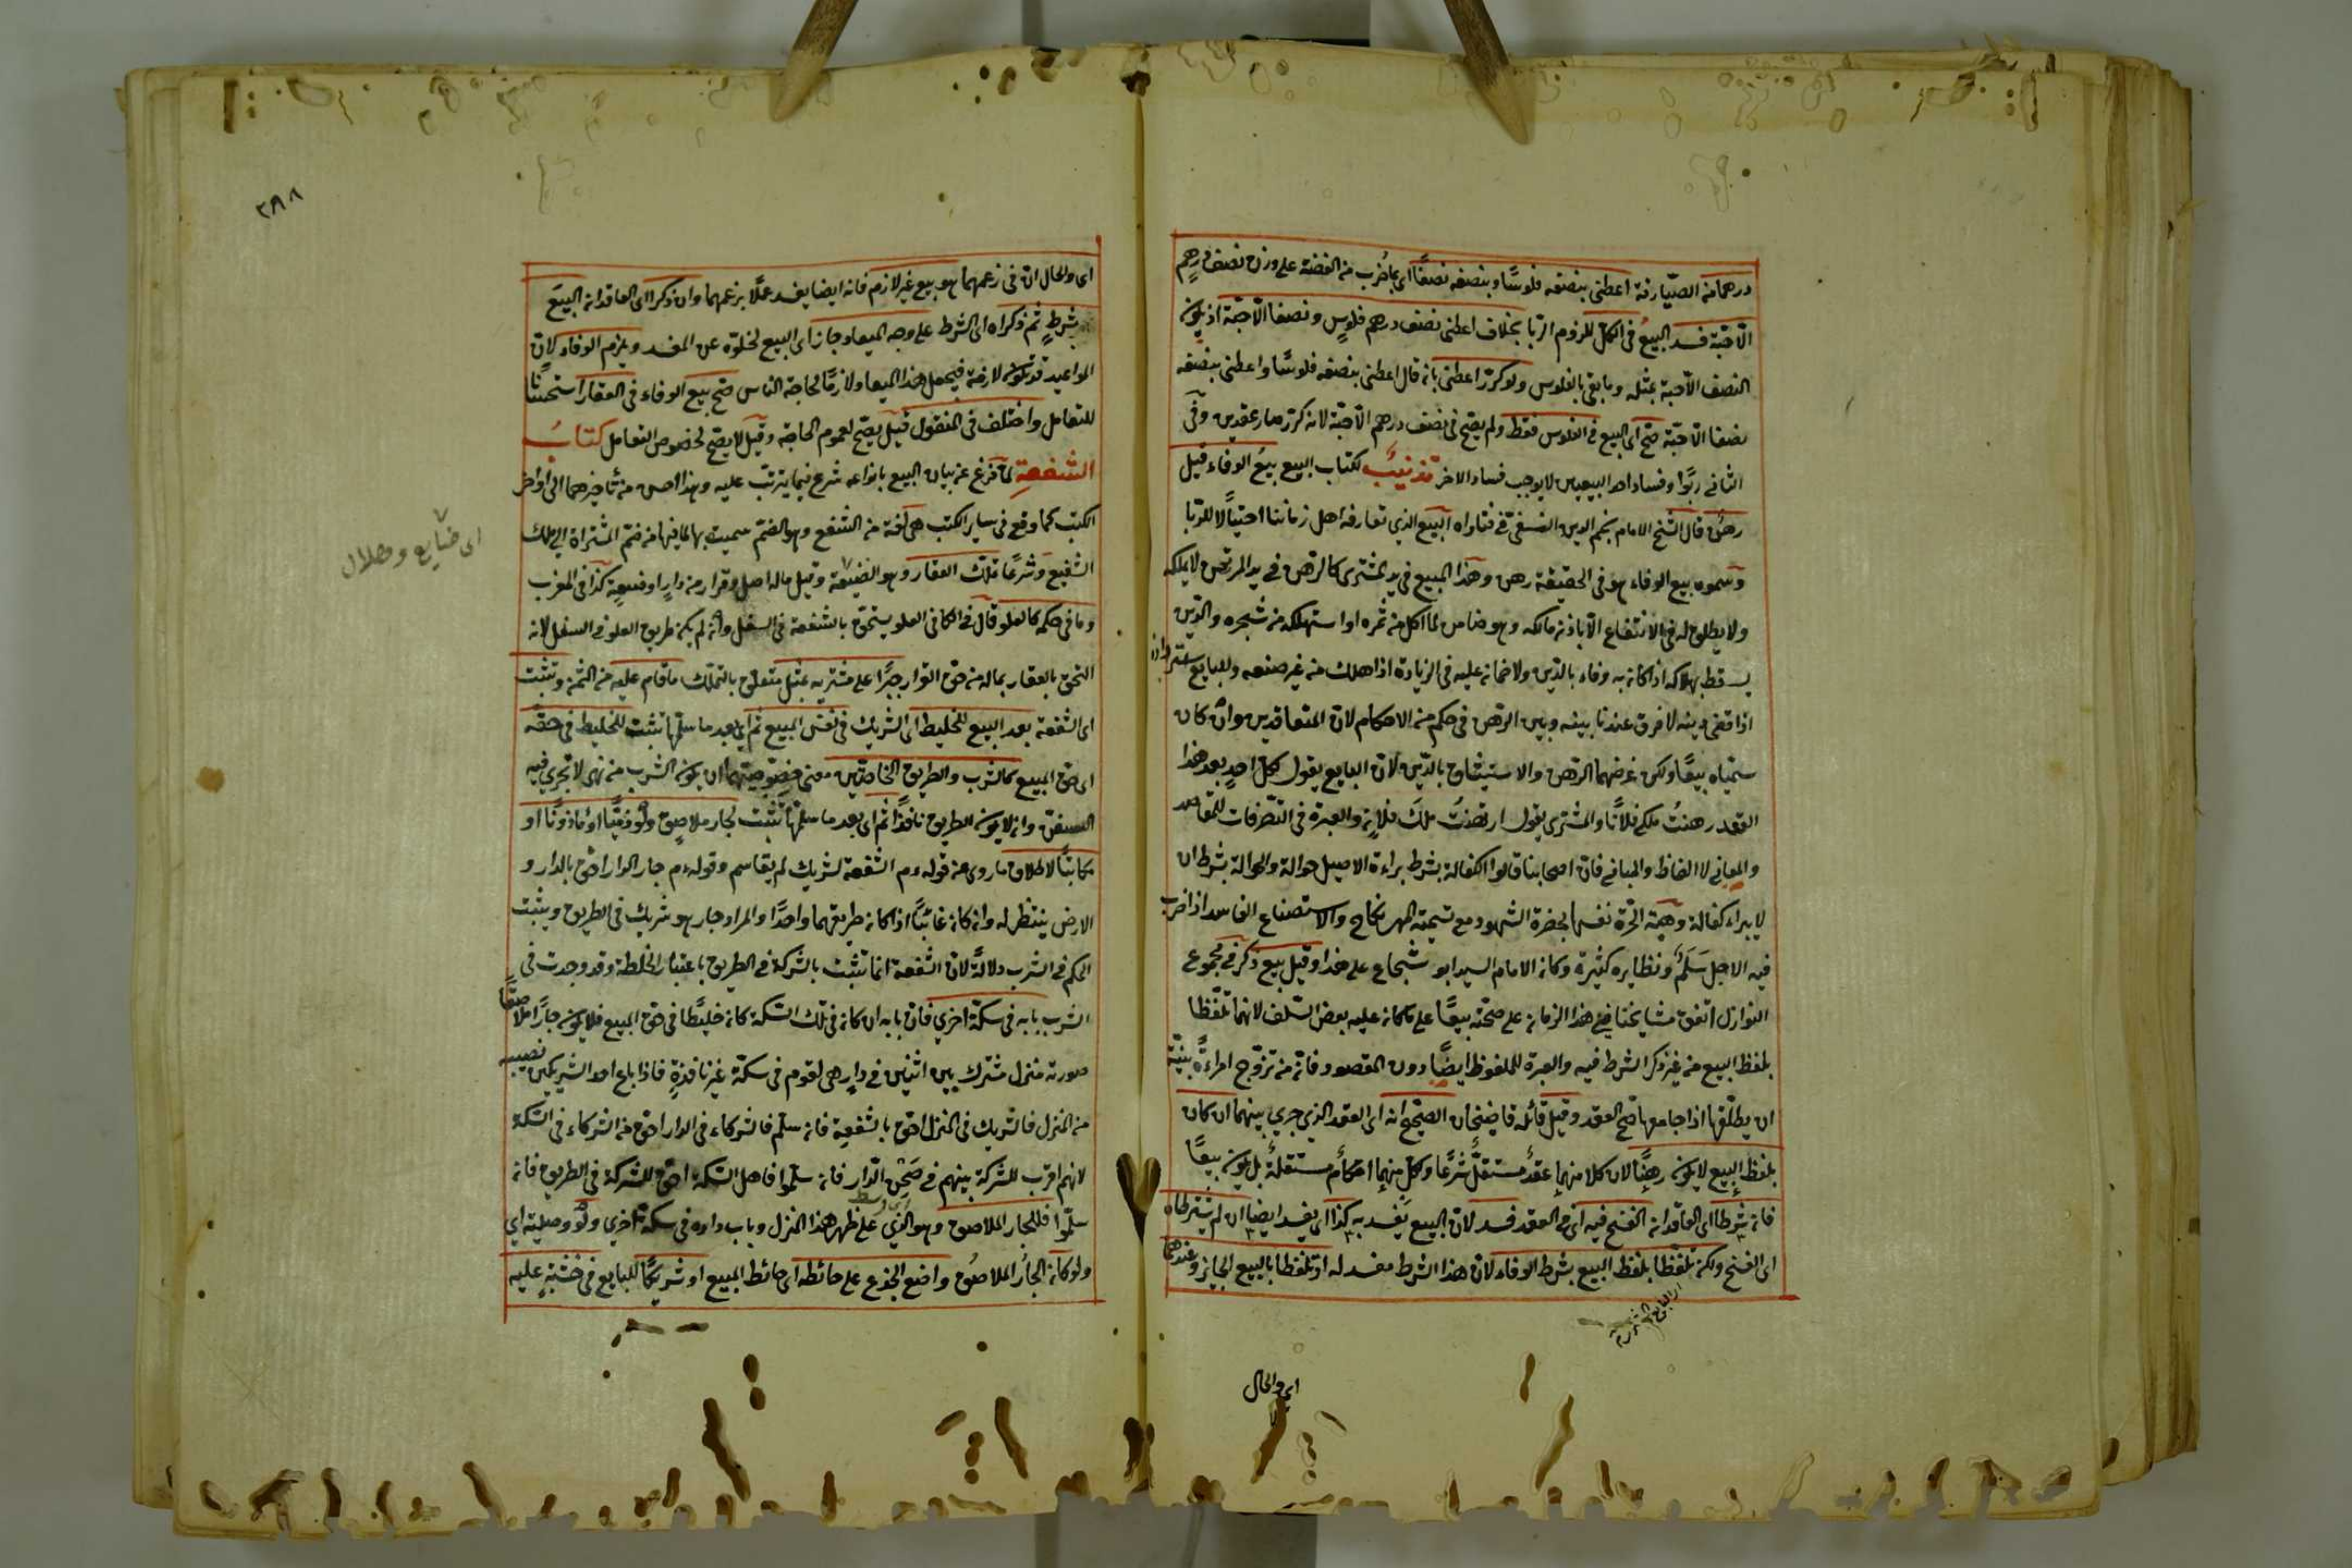 درهما من الصيارفة اعطنى بنصفه فلوسًا وبنصفه نصفًا اى ما ضُرب من الفضة على وزن نصف درهمٍ
الّا حبّة فسد البيعُ فى الكلّ للزوم الرّبا بخلاف اعطنى نصف درهم فلوسٍ ونصفا الّا حبّة اذ يكون
النصف الّا حبة بمثله وما بقى بالفلوس ولو كرّر اعطنى بان قال اعطنى بنصفه فلوسًا واعطنى بنصفه
نصفا الّا حبّة صحّ اى البيع فى الفلوس فقط ولم يصح فى نصف درهم الّا حبّة لانه كرّر صار عقدين وفى
الثانى ربًوا وفساد احد البيعين لا يوجب فساد الاخر تذنيبٌ لكتاب البيع بيعُ الوفاء قيل
رهنٌ قال الشيخ الامام نجم الدين النسفىّ فى فتاواه البيع الذي تعارفه اهل زماننا احتيالًا للرّبا
وسموه بيع الوفاء هو فى الحقيقة رهن وهذا المبيع فى يد المشترى كالرهن فى يد المرتهن لا يملكه
ولا يطلق له فى الانتفاع الّا باذن مالكه وهو ضامن لما اكل من ثمره او استهلكه من شجره والدّين
يسقط بهلاكه اذا كان به وفاء بالدّين ولا ضمان عليه فى الزيادة اذا هلك من غير صنعه وللبايع استرداده
اذا قضى دينه لا فرق عندنا بينه وبين الرّهن فى حكم من الاحكام لانّ المتعاقدين وان كان
سمّياه بيعًا ولكن غرضهما الرّهن والاستيثاق بالدّين لانّ البايع يقول لكلّ احدٍ بعد هذا
العقد رهنتُ ملكى فلانًا والمشترى يقول ارتهنتُ ملكَ فلانٍ والعبرة فى التصّرفات للمقاصد
والمعانى لا الفاظ والمبانى فانّ اصحابنا قالوا الكفالة بشرط براءة الاصيل حوالة والحوالة بشرط ان
لا يبراء كفالة وهبة الحّرة نفسها بحضرة الشهود مع تسمية المهر نكاح والاستصناع الفاسد اذا ضرب
فيه الاجل سَلَمٌ ونظايره كثيرة وكان الامام السيد ابو شجاع على هذا وقيل بيع ذكر فى مجموع
النوازل اتفق مشايخنا فى هذا الزمان على صحّته بيعًا على ما كان عليه بعض السّلف لانهما تلفّظا
بلفظ البيع من غير ذكر الشرط فيه والعبرة للملفوظ ايضًا دون المقصود فانّ من تزوّج امراءة بنيّة
ان يطلّقها اذا جامعها صحّ العقد وقيل قائله قاضيخان الصحيح انه اى العقد الذي جري بينهما ان كان
بلفظ البيع لا يكون رهنًا لان كلا منهما عقدٌ مستقلٌّ شرعًا وكلّ منهما احكامٌ مستقلةٌ بل يكون بيعًا
فان شرطا اى العاقدان الفسخ فيه اى فى العقد فسد لانّ البيع يفسد به كذا اى يفسد ايضا ان لم يشترطاه
اى الفسخ ولكن تلفّظا بلفظ البيع بشرط الوفاء لانّ هذا الشرط مفسد له او تلفّظا بالبيع الجايز وعندهما
اى والحال
٢٩٨
اى والحال ان فى زعمهما هو بيع غير لازم فانه ايضا يفسد عملًا بزعمهما وان ذكرا اى العاقدان البيعَ
بشرطٍ ثم ذكراه اى الشرط على وجه الميعاد جاز اى البيع لخلوّه عن المفسد ويلزم الوفاء لانّ
المواعيد قد تكون لازمة فيجعل هذا الميعاد لازمًا لحاجة الناس صّح بيع الوفاء فى العقار استحسانًا
للتعامل واختلف فى المنقول قيل يصّح لعموم الحاجة وقيل لا يصّح لخصوص التعامل كتابُ
الشفعةِ لمّا فرغ عن بيان البيع بانواعه شرع فيما يترتّب عليه وهذا احسن من تأخيرهما الى اواخر
الكتب كما وقع فى ساير الكتب هى لغة من الشفع وهو الضمّ سميت بها لما فيها من ضمّ المشتراة الى ملك
الشفيع وشرعًا تملّك العقار وهو الضيعة وقيل ما له اصل وقرار من دارٍ او ضيعةٍ كذا فى المغرب
وما فى حكمه كالعلو قال فى الكافى العلو يستحقّ بالشفعة فى السفل وان لم يكن طريق العلو فى السفل لانه
التحق بالعقار بما له من حق القرار جبرًا على مشتريه بمثل متعلق بالتملّك ما قام عليه من الثمن وتثبت
اى الشفعة بعد البيع للخليط اى الشريك فى نفس المبيع ثم اى بعد ما سلّمها تثبت للخليط فى حقّه
اى حق المبيع كالشرب والطريق الخاصّين معنى خصوصيّتهما ان يكون الشرب من نهر لا تجري فيه
السفن وان لا يكون الطريق نافذًا ثم اى بعد ما سلّمها تثبت لجار ملاصق ولو ذميًّا او مأذونًا او
مكاتبًا لاطلاق ما روى من قوله عم الشفعة لشريك لم يقاسم وقوله عم جار الدار احقّ بالدار و
الارض ينتظر له وان كان غائبًا اذا كان طريقهما واحدًا والمراد جار هو شريك فى الطريق ويثبت
الحكم فى الشرب دلالةً لانّ الشفعة انما تثبت بالشركة فى الطريق باعتبار الخلطة وقد وجدت فى
الشرب بابه فى سكّة اخري فانّ بابه ان كان فى تلك السّكة كان خليطًا فى حق المبيع فلا يكون جارًا ملاصقًا
صورته منزل مشترك بين اثنين فى دارٍ هى لقوم فى سكّة غير نافذةٍ فاذا باع احد الشريكين نصيبه
من المنزل فالشريك فى المنزل احق بالشفعة فان سلّم فالشركاء فى الدار احق من الشركاء فى السّكة
لانهم اقرب للشركة بينهم فى صَحْنِ الدّار فان سلّموا فاهل السّكة احقّ للشركة فى الطريق فان
سلّموا فللجار الملاصق وهو الذي على ظهر هذا المنزل وباب داره فى سكة اخري ولو وصلية اى
ولو كان الجار الملاصق واضع الجذوع على حائطه اى حائط المبيع او شريكًا للبايع فى خشبةٍ عليه
اى ضيايع وحلال